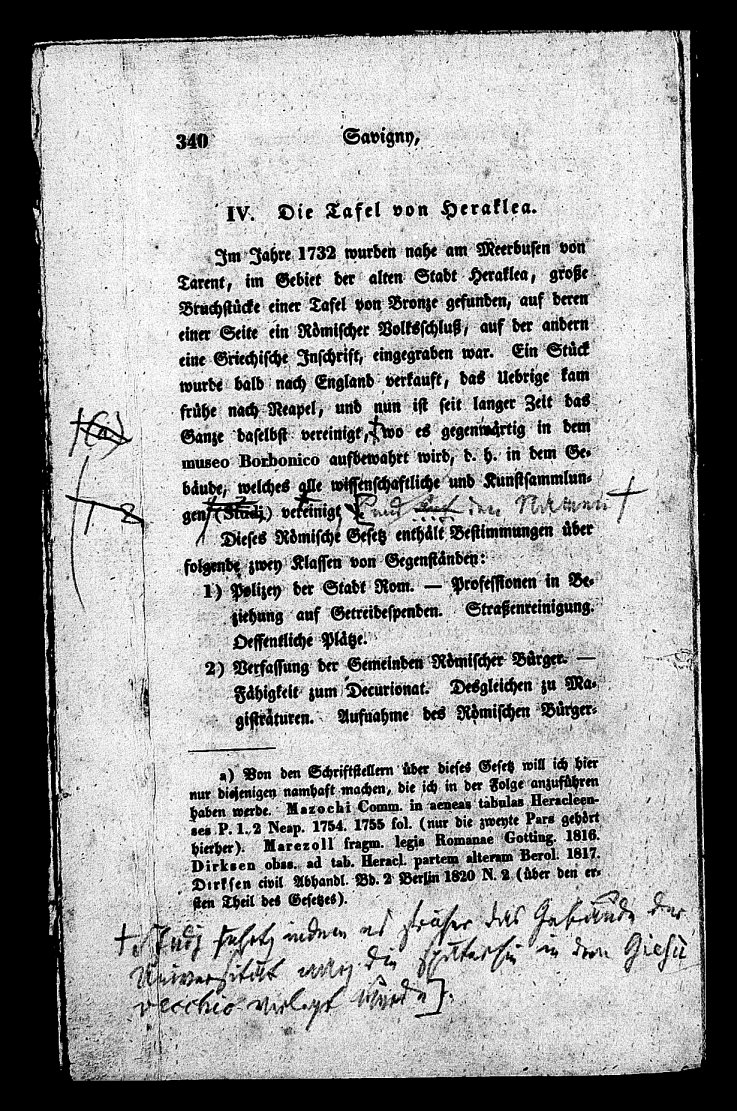 340
Savigny,
IV. Die Tafel von Heraklea.
Im Jahre 1732 wurden nahe am Meerbusen von
Tarent, im Gebiet der alten Stadt Heraklea, große
Bruchstücke einer Tafel von Bronze gefunden, auf deren
einer Seite ein Römischer Volksschluß, auf der andern
eine Griechische Inschrift, eingegraben war. Ein Stück
wurde bald nach England verkauft, das Uebrige kam
frühe nach Neapel, und nun ist seit langer Zeit das
(a)
Ganze daselbst vereinigt, wo es gegenwärtig in dem
museo Borbonico aufbewahrt wird, d. h. in dem Ge-
bäude, welches alle wissenschaftliche und Kunstsammlun-
gen (Studj) vereinigt [und den Namen
Dieses Römische Gesetz enthält Bestimmungen über
folgende zwey Klassen von Gegenständen:
1) Polizey der Stadt Rom. — Professionen in Be-
ziehung auf Getreidespenden. Straßenreinigung.
Oeffentliche Plätze.
2) Verfassung der Gemeinden Römischer Bürger. —
Fähigkeit zum Decurionat. Desgleichen zu Ma-
gistraturen. Aufnahme des Römischen Bürger-
a) Von den Schriftstellern über dieses Gesetz will ich hier
nur diejenigen namhaft machen, die ich in der Folge anzuführen
haben werde. Mazochi Comm. in aeneas tabulas Heracleen-
ses P. 1. 2 Neap. 1754. 1755 fol. (nur die zweyte Pars gehört
hierher). Marezoll fragm. legis Romanae Gotting. 1816.
Dirksen obss. ad tab. Heracl. partem alteram Berol. 1817.
Dirksen civil Abhandl. Bd. 2 Berlin 1820 N. 2 (über den er-
sten Theil des Gesetzes).
Studj indem es früher das Gebäude der
Universität war die späterhin in dem Giesù
vecchio verlegt wurde].